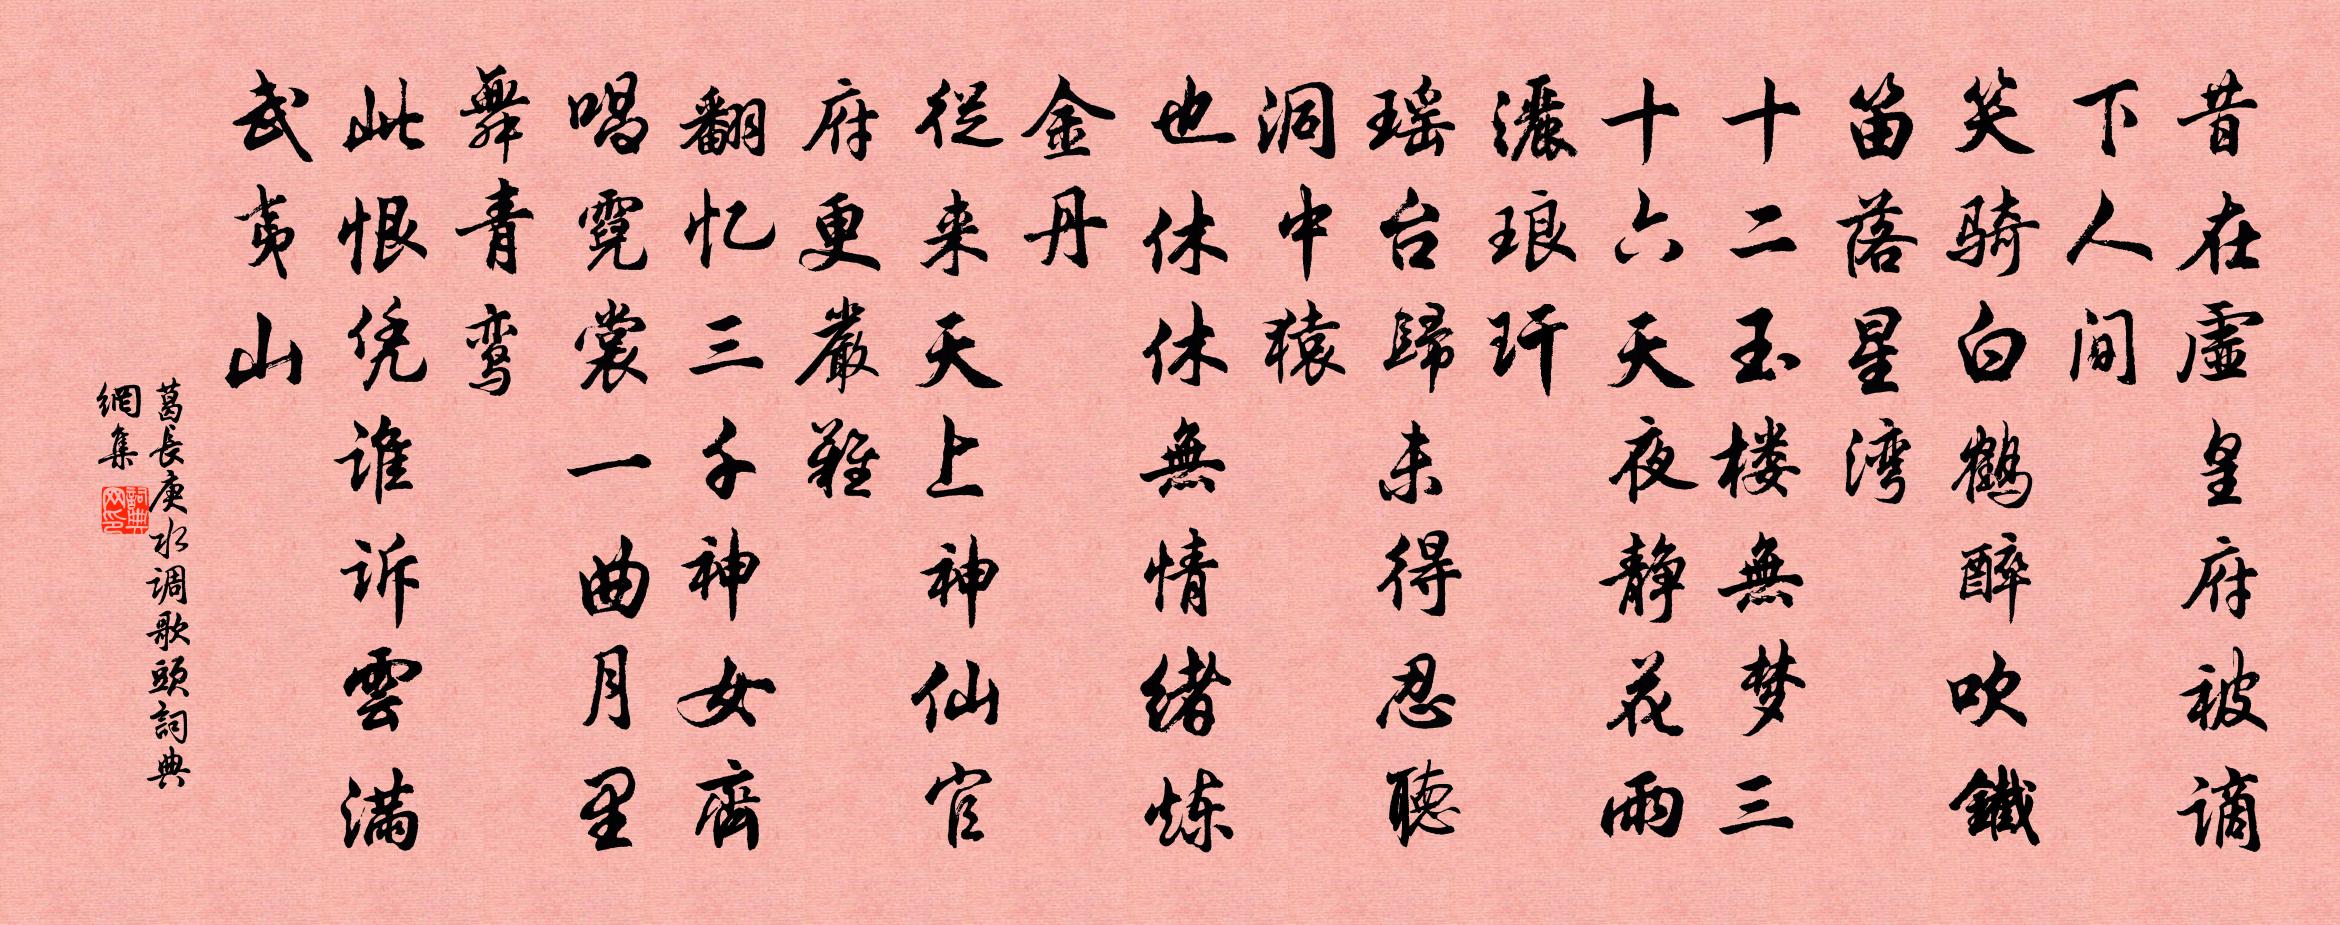 昔在虚皇府被谪
下人间
笑骑白鹤醉吹鐵
笛落星湾
十二玉楼無梦三
十六天夜静花雨
灑琅玕
瑶台歸未得忍聽
洞中猿
也休休無情緒炼
金丹
從来天上神仙官
府更嚴難
翻忆三千神女齊
唱霓裳一曲月里
舞青鸾
此恨凭谁诉雲满
武夷山
葛長庚水调歌頭詞典
網集
詞典
网印